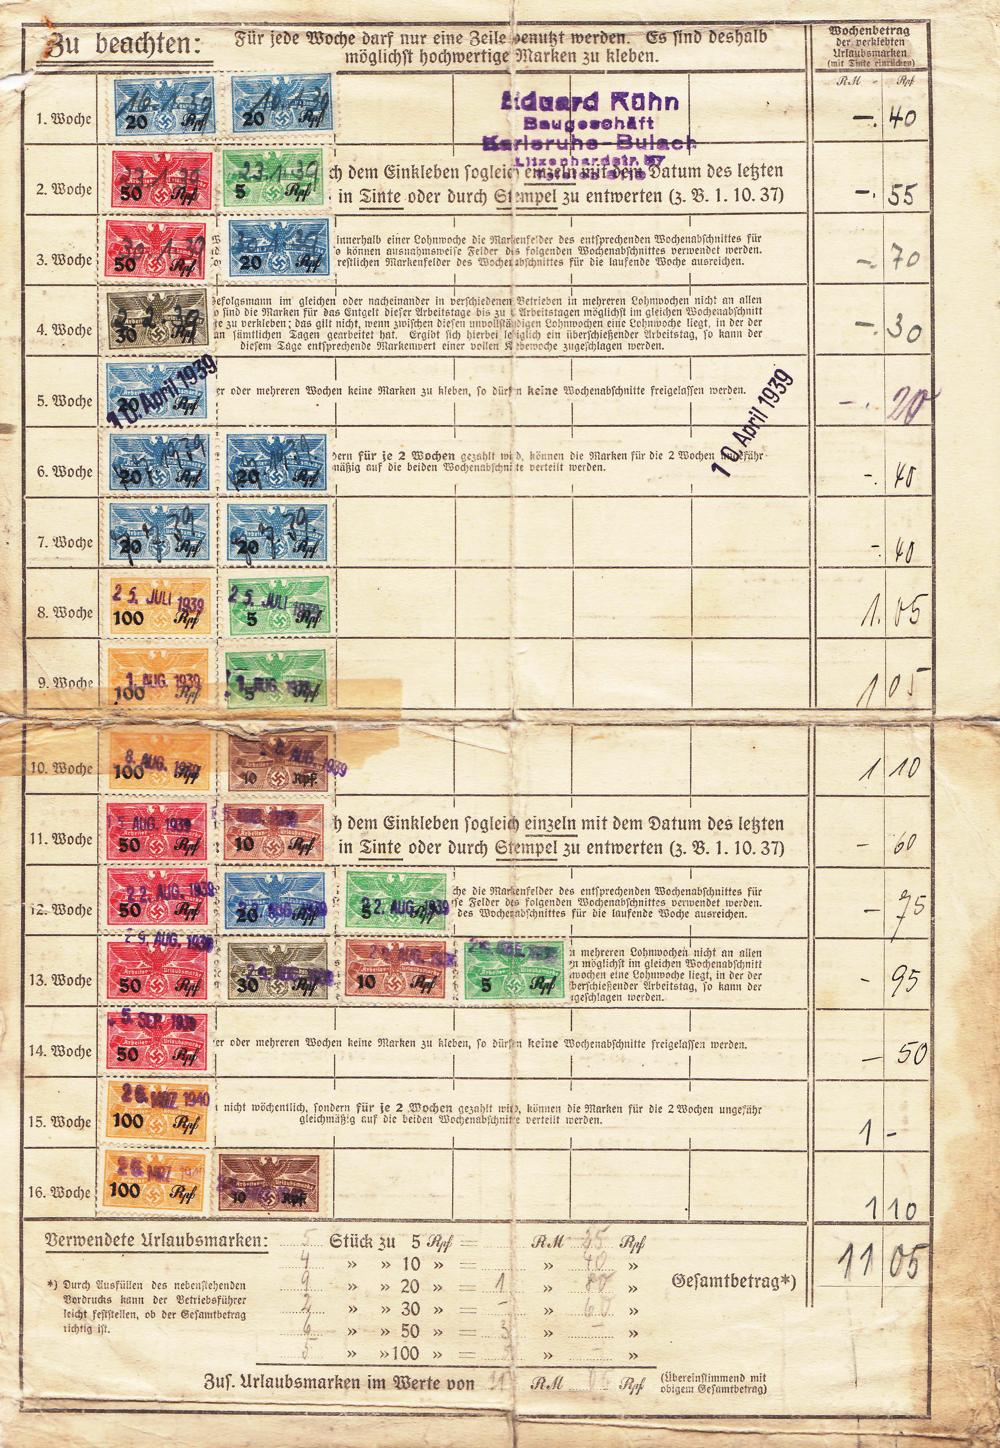 Zu beachten:
Für jede Woche darf nur eine Zeile benutzt werden. Es sind deshalb
möglichst hochwertige Marken zu kleben.
Wochenbetrag
der verklebten
Urlaubsmarken
(mit Tinte einrücken)
RM Rpf
1. Woche
20 Rpf 20 Rpf
Eduard Kühn
Baugeschäft
Karlsruhe-Bulach
-. 40
2. Woche
50 Rpf 5 Rpf
23.1.39
ch dem Einkleben sogleich einzeln mit dem Datum des letzten
in Tinte oder durch Stempel zu entwerten (z. B. 1. 10. 37)
-. 55
3. Woche
50 Rpf 20 Rpf
30.1.39
innerhalb einer Lohnwoche die Markenfelder des entsprechenden Wochenabschnittes für
können ausnahmsweise Felder des folgenden Wochenabschnittes verwendet werden.
restlichen Markenfelder des Wochenabschnittes für die laufende Woche ausreichen.
-. 70
4. Woche
30 Rpf
Gefolgsmann im gleichen oder nacheinander in verschiedenen Betrieben in mehreren Lohnwochen nicht an allen
so sind die Marken für das Entgelt dieser Arbeitstage bis zu 6 Arbeitstagen möglichst im gleichen Wochenabschnitt
zu verkleben; das gilt nicht, wenn zwischen diesen unvollständigen Lohnwochen eine Lohnwoche liegt, in der der
an sämtlichen Tagen gearbeitet hat. Ergibt sich hierbei lediglich ein überschießender Arbeitstag, so kann der
diesem Tage entsprechende Markenwert einer vollen Klebewoche zugeschlagen werden.
-. 30
5. Woche
20 Rpf
10. April 1939
er oder mehreren Wochen keine Marken zu kleben, so dürfen keine Wochenabschnitte freigelassen werden.
10. April 1939
-. 20
6. Woche
20 Rpf 20 Rpf
dern für je 2 Wochen gezahlt wird, können die Marken für die 2 Wochen ungefähr
mäßig auf die beiden Wochenabschnitte verteilt werden.
-. 40
7. Woche
20 Rpf 20 Rpf
-. 40
8. Woche
25. JULI 1939 25. JULI 1939
100 Rpf 5 Rpf
1.05
9. Woche
1. AUG. 1939 1. AUG. 1939
100 Rpf 5 Rpf
1 05
10. Woche
8. AUG. 1939 8. AUG. 1939
100 Rpf 10 Rpf
1 10
11. Woche
AUG. 1939
Arbeiter Urlaubsmarke
50 Rpf 10 Rpf
ch dem Einkleben sogleich einzeln mit dem Datum des letzten
in Tinte oder durch Stempel zu entwerten (z. B. 1. 10. 37)
- 60
12. Woche
22. AUG. 1939 22. AUG. 1939 22. AUG. 1939
50 Rpf 20 Rpf 5 Rpf
che die Markenfelder des entsprechenden Wochenabschnittes für
se Felder des folgenden Wochenabschnittes verwendet werden.
des Wochenabschnittes für die laufende Woche ausreichen.
- 75
13. Woche
29. AUG. 1939 29. AUG. 1939
50 Rpf 30 Rpf 10 Rpf 5 Rpf
mehreren Lohnwochen nicht an allen
möglichst im gleichen Wochenabschnitt
wochen eine Lohnwoche liegt, in der der
berschießender Arbeitstag, so kann der
geschlagen werden.
- 95
14. Woche
5. SEP. 1939
50 Rpf
er oder mehreren Wochen keine Marken zu kleben, so dürfen keine Wochenabschnitte freigelassen werden.
- 50
15. Woche
26. MRZ 1940
100 Rpf
nicht wöchentlich, sondern für je 2 Wochen gezahlt wird, können die Marken für die 2 Wochen ungefähr
gleichmäßig auf die beiden Wochenabschnitte verteilt werden.
1 -
16. Woche
26. MRZ 1940
100 Rpf 10 Rpf
1 10
Verwendete Urlaubsmarken:
5 Stück zu 5 Rpf = RM 25 Rpf
4 » » 10 » = » 40 »
9 » » 20 » = 1 » 80 »
2 » » 30 » = - » 60 »
6 » » 50 » = 3 » - »
5 » » 100 » = » - »
Gesamtbetrag*)
11 05
*) Durch Ausfüllen des nebenstehenden
Vordrucks kann der Betriebsführer
leicht feststellen, ob der Gesamtbetrag
richtig ist.
Zus. Urlaubsmarken im Werte von RM Rpf
(Übereinstimmend mit
obigem Gesamtbetrag)